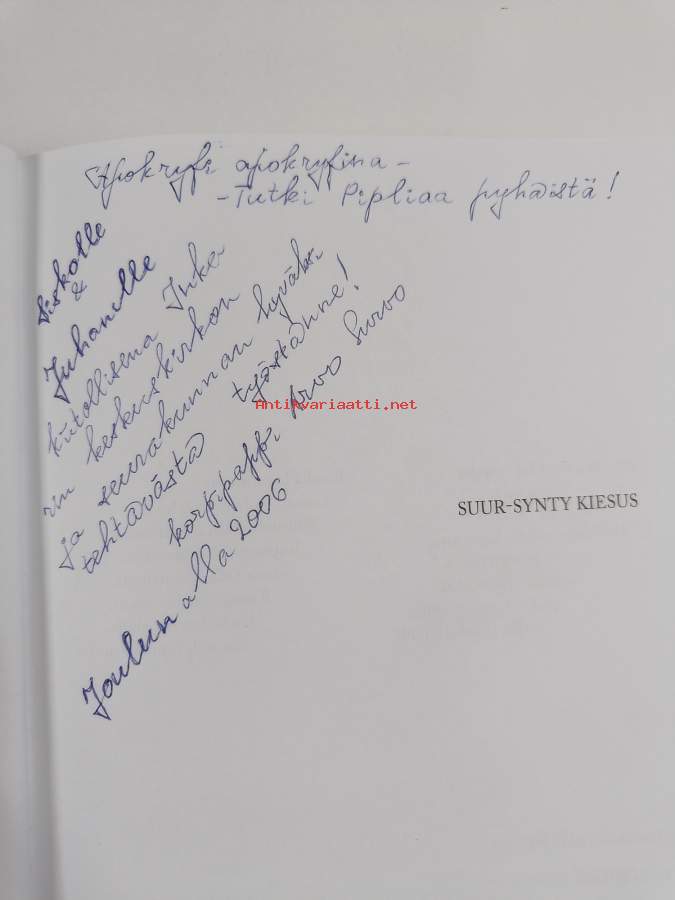 Apokryfi apokryfina -
- Tutki Pipliaa pyhäistä!
Siskolle
&
Juhanille
kiitollisena Inke-
rin keskuskirkon
ja seurakunnan hyväksi
tehtävästä työstänne!
korpipappi Arvo Survo
Joulun alla 2006
Antikvariaatti.net
SUUR-SYNTY KIESUS